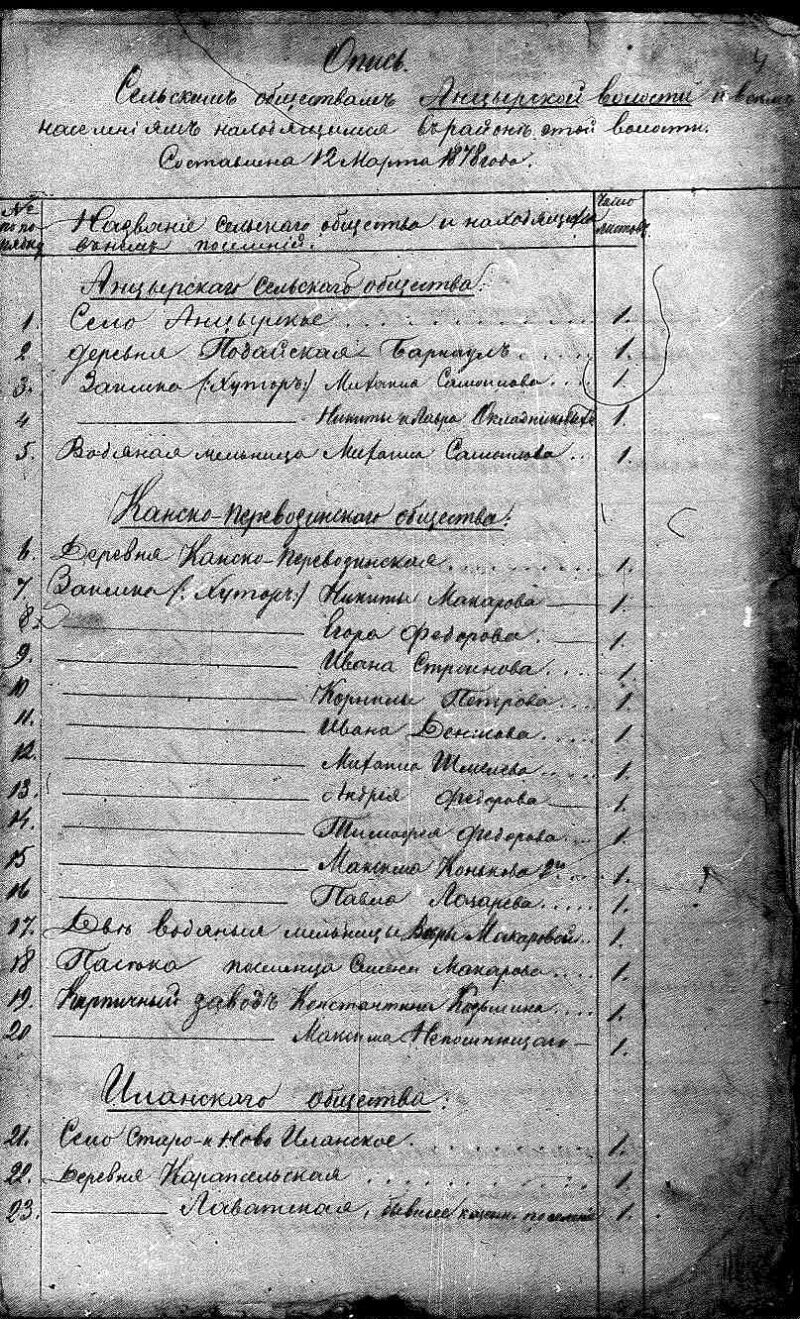 4
Опись.
Сельскимъ обществамъ Анцырской волости и всемъ
населеніямъ находящимся въ районѣ этой волости.
Составлена 12 Марта 1878 года.
№№ по порядку
Названіе сельскаго общества и находящихся въ немъ поселеній.
Число листовъ
Анцырскаго сельскаго общества:
1. Село Анцырское 1.
2. деревня Подайская-Барнаулъ 1.
3. Заимка (:Хуторъ:) Михаила Самойлова 1.
4 Никиты и Лавра Окладниковыхъ 1.
5. Водяная мельница Михаила Самойлова 1.
Канско-Переводинскаго общества:
6. Деревня Канско-Переводинская 1.
7. Заимка (:Хуторъ:) Никиты Макарова 1.
8. Егора Федорова 1.
9. Ивана 1.
10 Корнилы Петрова 1.
11. Ивана Денисова 1.
12. Михаила Шмелева 1.
13. Андрея Федорова 1.
14. Тимофея Федорова 1.
15 Максима Конькова 1.
16 Павла Лазарева 1.
17. Двѣ водяныя мельницы Макаровой 1.
18 Пасѣка поселенца Семена Макарова 1.
19. Кирпичный заводъ Константина Кузьмина 1.
20 Максима Непомнющаго 1.
Иланскаго общества:
21. Село Старо-и Ново Иланское 1.
22. Деревня Карапсельская 1.
23. Лаватская, бывшее казен. поселеніе 1.